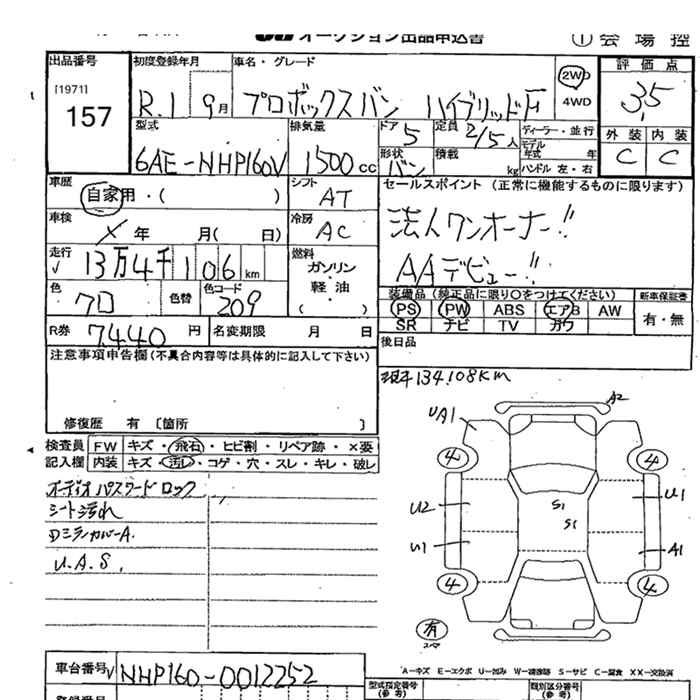 オークション出品申込書 ①会場控
出品番号 初度登録年月 車名・グレード 評価点
[1971]
157 R.1 9月 プロボックスバン ハイブリッドF 2WD 4WD 3.5
型式 排気量 ドア 定員 ディーラー・並行 外装 内装
6AE-NHP160V 1500cc 5 2/5人 モデル年式 年 C C
形状 バン 積載 kg ハンドル 左・右
車歴 自家用・( ) シフト AT セールスポイント(正常に機能するものに限ります)
車検 × 年 月( 日) 冷房 AC 法人ワンオーナー!!
走行 13万4千106km 燃料 ガソリン・軽油 ( ) AAデビュー!!
色 色替 色コード 209 装備品(純正品に限り○をつけてください) 新車保証書
PS PW ABS エアB AW 有・無
SR ナビ TV カワ
R券 7,440円 名変期限 月 日 後日品
注意事項申告欄(不具合内容等は具体的に記入して下さい)
現キ134,108km
修復歴 有 〔箇所 〕
検査員 FW キズ・飛石・ヒビ割・リペア跡・×要
記入欄 内装 キズ・汚レ・コゲ・穴・スレ・キレ・破レ
オーディオパスワードロック
シート汚れ
Dミラーカバー-A.
U.A.S.
A2
UA1
4 4
U2 S1 U1
S1
U1 A1
4 4
有
A-キズ E-エクボ U-凹み W-補修跡 S-サビ C-腐食 XX-交換済
車台番号 NHP160-0012252 型式指定番号(参考) 類別区分番号(参考)
登録番号